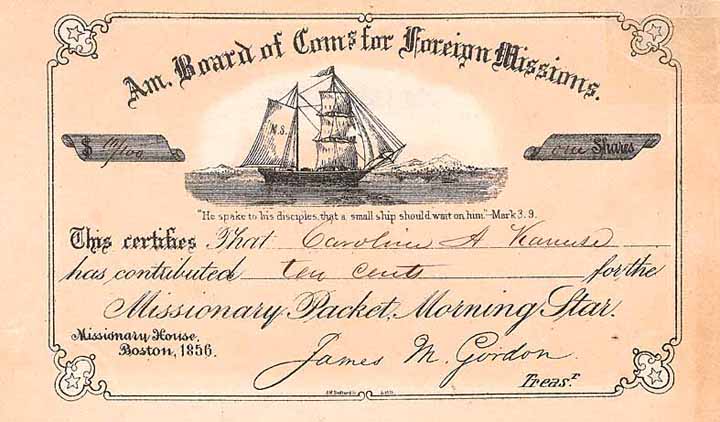 Am. Board of Com.s for Foreign Missions.
M.S.
$ 10/100
one Shares
"He spake to his disciples, that a small ship should wait on him."-Mark 3.9.
This certifies That Caroline A
has contributed ten cents for the
Missionary Packet, Morning Star.
Missionary House,
Boston, 1856.
James M. Gordon
Treas.r